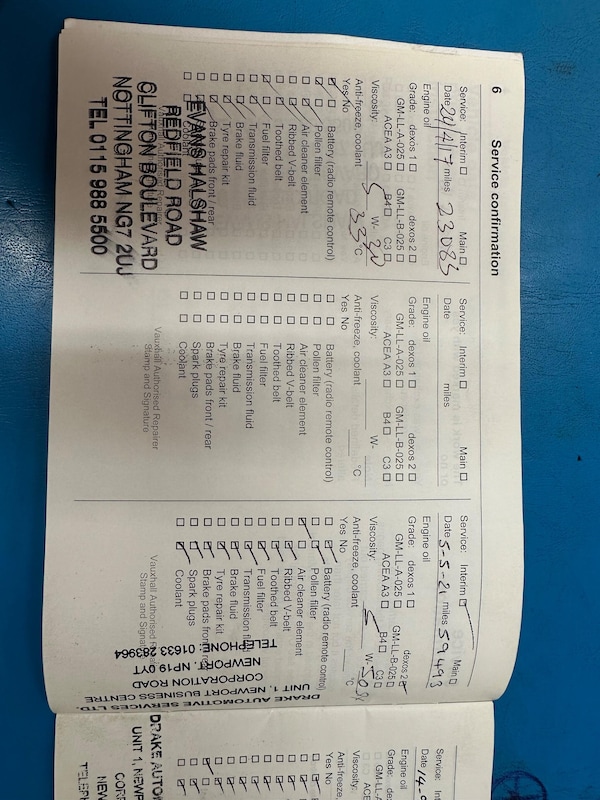 6 Service confirmation
Service: Interim Main
Date 24/4/17 miles 23084
Engine oil
Grade: dexos 1 dexos 2
GM-LL-A-025 GM-LL-B-025
ACEA A3 B4 C3
Viscosity: 5 W- 30
Anti-freeze, coolant 33 °C
Yes No
Battery (radio remote control)
Pollen filter
Air cleaner element
Ribbed V-belt
Toothed belt
Fuel filter
Transmission fluid
Brake fluid
Tyre repair kit
Brake pads front / rear
Coolant
EVANS HALSHAW
REDFIELD ROAD
CLIFTON BOULEVARD
NOTTINGHAM NG7 2UJ
TEL 0115 988 5500
Service: Interim Main
Date miles
Engine oil
Grade: dexos 1 dexos 2
GM-LL-A-025 GM-LL-B-025
ACEA A3 B4 C3
Viscosity: W-
Anti-freeze, coolant °C
Yes No
Battery (radio remote control)
Pollen filter
Air cleaner element
Ribbed V-belt
Toothed belt
Fuel filter
Transmission fluid
Brake fluid
Tyre repair kit
Brake pads front / rear
Spark plugs
Coolant
Vauxhall Authorised Repairer
Stamp and Signature
Service: Interim Main
Date 5-5-21 miles 59493
Engine oil
Grade: dexos 1 dexos 2
GM-LL-A-025 GM-LL-B-025
ACEA A3 B4 C3
Viscosity: 5 W-
Anti-freeze, coolant °C
Yes No
Battery (radio remote control)
Pollen filter
Air cleaner element
Ribbed V-belt
Toothed belt
Fuel filter
Transmission fluid
Brake fluid
Tyre repair kit
Brake pads front
Spark plugs
Coolant
Vauxhall Authorised
Stamp and Signature
DRAKE AUTOMOTIVE SERVICES LTD.
UNIT 1, NEWPORT BUSINESS CENTRE
CORPORATION ROAD
NEWPORT. NP19 0YT
TELEPHONE: 01633 283964
Service:
Date 14-
Engine oil
Grade:
GM-LL-
ACEA
Viscosity:
Anti-freeze,
Yes No
DRAKE AUTO
UNIT 1, NEWP
COR
NEW
TELEPH